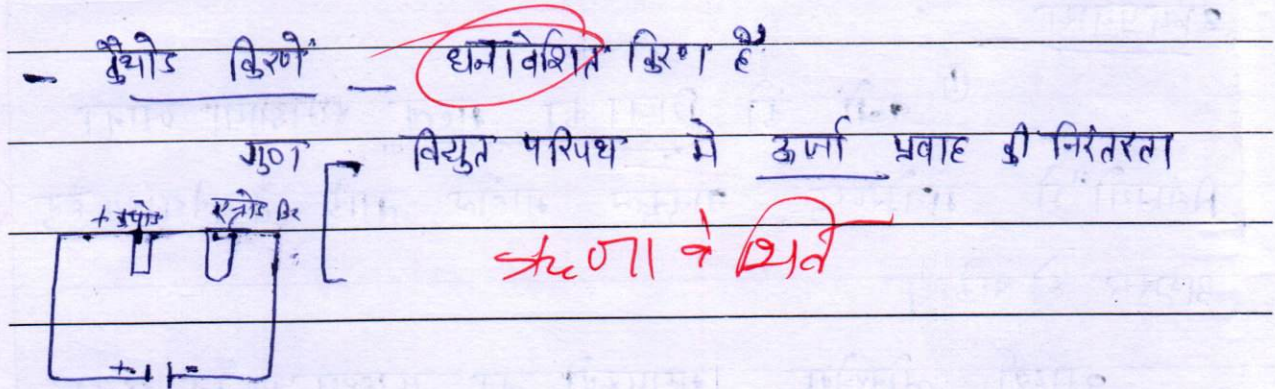 - कैथोड किरणें - धनावेशित किरण है
गुण - विद्युत परिपथ मे ऊर्जा प्रवाह की निरंतरता
+ कैथोड एनोड
ऋणावेशित
+ -